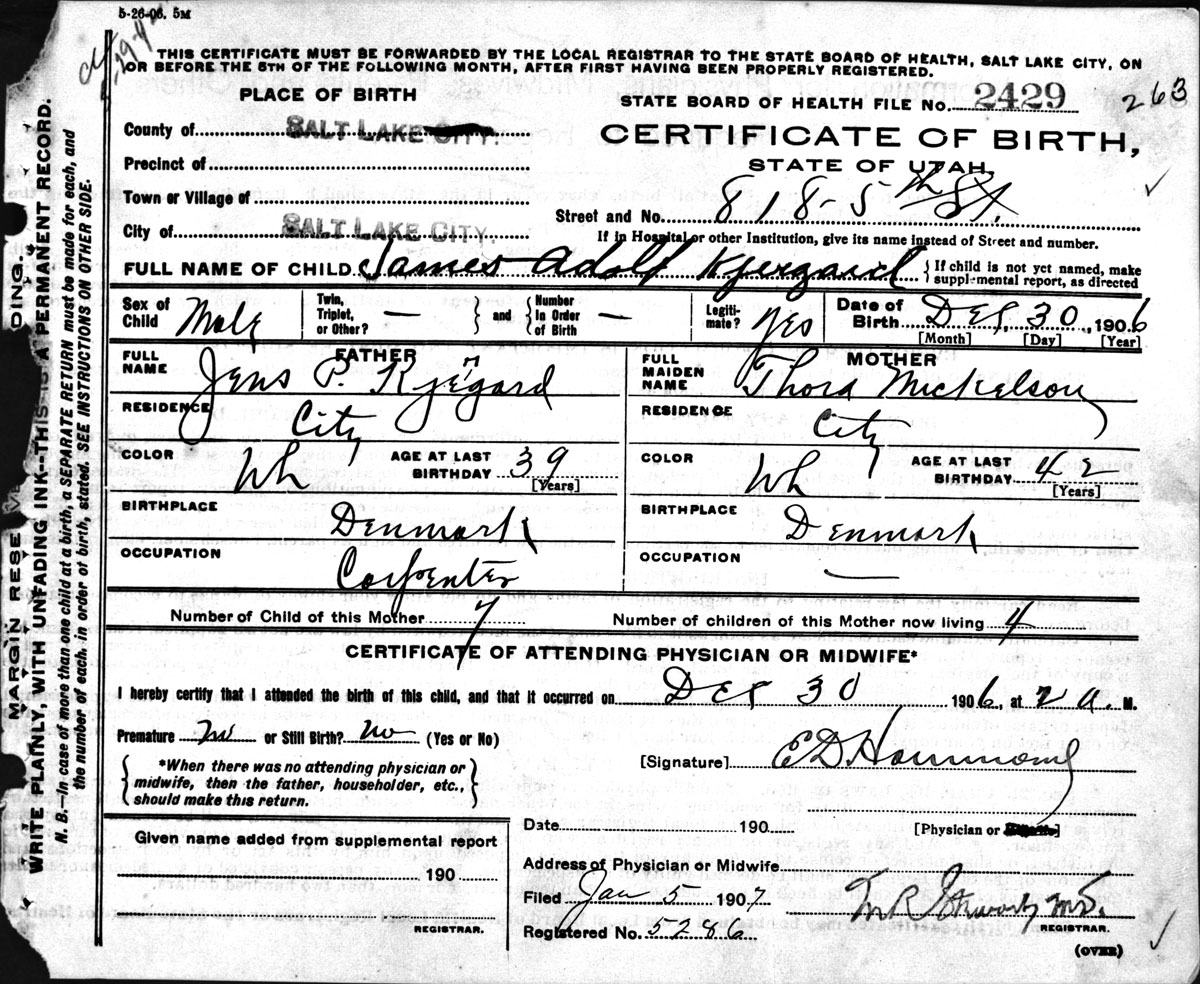 5-26-06. 5M
THIS CERTIFICATE MUST BE FORWARDED BY THE LOCAL REGISTRAR TO THE STATE BOARD OF HEALTH, SALT LAKE CITY, ON
OR BEFORE THE 5TH OF THE FOLLOWING MONTH, AFTER FIRST HAVING BEEN PROPERLY REGISTERED.
PLACE OF BIRTH
STATE BOARD OF HEALTH FILE No. 2429
263
County of SALT LAKE CITY.
CERTIFICATE OF BIRTH,
STATE OF UTAH.
Precinct of
Town or Village of
Street and No. 818-5th St.
City of SALT LAKE CITY.
If in Hospital or other Institution, give its name instead of Street and number.
FULL NAME OF CHILD. James Adolf Kjergard
If child is not yet named, make supplemental report, as directed
Sex of Child Male
Twin, Triplet, or Other? —
and
Number in Order of Birth —
Legitimate? yes
Date of Birth Dec, 30, 1906
[Month] [Day] [Year]
FATHER
FULL NAME Jens P. Kjegard
r
RESIDENCE City
COLOR Wh
AGE AT LAST BIRTHDAY 39
[Years]
BIRTHPLACE Denmark
OCCUPATION Carpenter
MOTHER
FULL MAIDEN NAME Thora Mickelson
RESIDENCE City
COLOR Wh
AGE AT LAST BIRTHDAY 42
[Years]
BIRTHPLACE Denmark
OCCUPATION —
Number of Child of this Mother 7
Number of children of this Mother now living 4
CERTIFICATE OF ATTENDING PHYSICIAN OR MIDWIFE*
I hereby certify that I attended the birth of this child, and that it occurred on Dec 30 1906, at 2 a. M.
Premature no or Still Birth? no (Yes or No)
*When there was no attending physician or
midwife, then the father, householder, etc.,
should make this return.
[Signature] E D Hammond
Date 190
[Physician or
Given name added from supplemental report
190
REGISTRAR.
Address of Physician or Midwife
Filed Jan 5 1907
Registered No. 5286
M.D.
REGISTRAR.
(OVER)
MARGIN RESE
DING.
WRITE PLAINLY, WITH UNFADING INK--THIS IS A PERMANENT RECORD.
N. B.—In case of more than one child at a birth, a SEPARATE RETURN must be made for each, and
the number of each, in order of birth, stated. SEE INSTRUCTIONS ON OTHER SIDE.